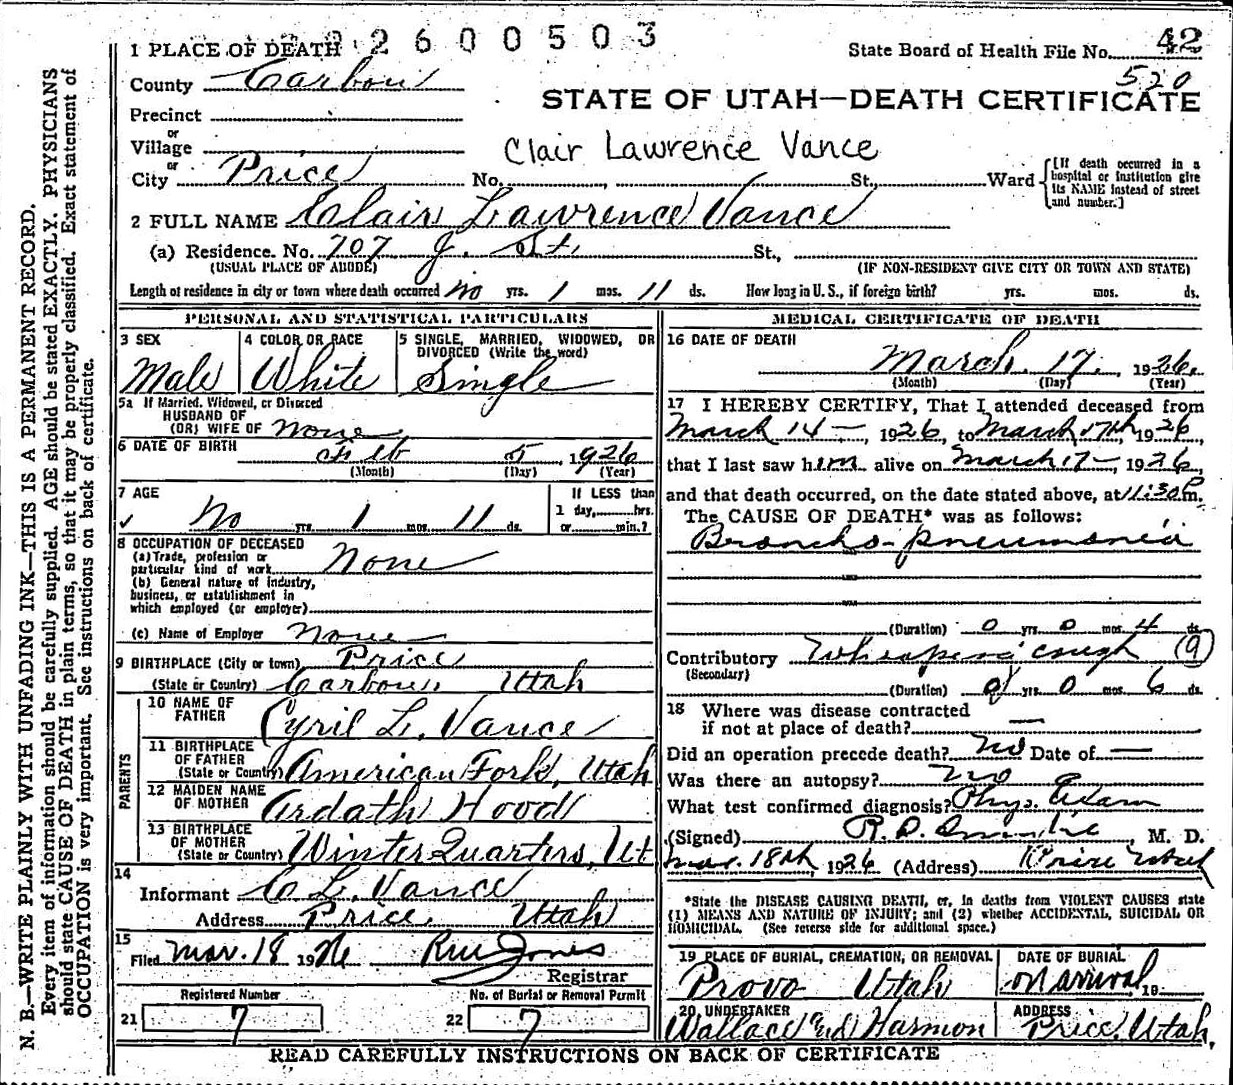 2600503
1 PLACE OF DEATH
State Board of Health File No. 42
520
County Carbon
STATE OF UTAH—DEATH CERTIFICATE
Precinct
or
Village
Clair Lawrence Vance
or
City Price No. , St., Ward
[If death occurred in a
hospital or institution give
its NAME instead of street
and number.]
2 FULL NAME Clair Lawrence Vance
(a) Residence. No. 707 J. St. St.,
(USUAL PLACE OF ABODE) (IF NON-RESIDENT GIVE CITY OR TOWN AND STATE)
Length of residence in city or town where death occurred No yrs. 1 mos. 11 ds. How long in U. S., if foreign birth? yrs. mos. ds.
PERSONAL AND STATISTICAL PARTICULARS
3 SEX
Male
4 COLOR OR RACE
White
5 SINGLE, MARRIED, WIDOWED, OR
DIVORCED (Write the word)
Single
5a If Married, Widowed, or Divorced
HUSBAND OF
(OR) WIFE OF None
6 DATE OF BIRTH Feb 5 1926
(Month) (Day) (Year)
7 AGE
No yrs. 1 mos. 11 ds.
If LESS than
1 day, hrs.
or min.?
8 OCCUPATION OF DECEASED
(a) Trade, profession or
particular kind of work None
(b) General nature of industry,
business, or establishment in
which employed (or employer)
(c) Name of Employer None
9 BIRTHPLACE (City or town) Price
(State or Country) Carbon, Utah
PARENTS
10 NAME OF
FATHER Cyril L. Vance
11 BIRTHPLACE
OF FATHER
(State or Country) American Fork, Utah
12 MAIDEN NAME
OF MOTHER Ardath Hood
13 BIRTHPLACE
OF MOTHER
(State or Country) Winter Quarters, Ut
14
Informant C L. Vance
Address Price Utah
15
Filed Mar. 18 1926 RW Jones
Registrar
Registered Number
21 7
No. of Burial or Removal Permit
22 7
MEDICAL CERTIFICATE OF DEATH
16 DATE OF DEATH
March 17. 1926.
(Month) (Day) (Year)
17 I HEREBY CERTIFY, That I attended deceased from
March 14 — 1926, to March 17th 1926,
that I last saw him alive on March 17 — 1926,
and that death occurred, on the date stated above, at 11:30 P m.
The CAUSE OF DEATH* was as follows:
Broncho-pneumonia
(Duration) 0 yrs. 0 mos. 4 ds.
Contributory Whooping cough (9)
(Secondary)
(Duration) 0 yrs. 0 mos. 6 ds.
18 Where was disease contracted
if not at place of death? —
Did an operation precede death? No Date of —
Was there an autopsy? No
What test confirmed diagnosis? Phys. Exam
(Signed) R. D. M. D.
Mar. 18th 1926 (Address) Price Utah
*State the DISEASE CAUSING DEATH, or, in deaths from VIOLENT CAUSES state
(1) MEANS AND NATURE OF INJURY; and (2) whether ACCIDENTAL, SUICIDAL OR
HOMICIDAL. (See reverse side for additional space.)
19 PLACE OF BURIAL, CREMATION, OR REMOVAL
Provo Utah
DATE OF BURIAL
on arrival 19
20 UNDERTAKER
Wallace and Harmon
ADDRESS
Price, Utah,
READ CAREFULLY INSTRUCTIONS ON BACK OF CERTIFICATE
N. B.—WRITE PLAINLY WITH UNFADING INK—THIS IS A PERMANENT RECORD.
Every item of information should be carefully supplied. AGE should be stated EXACTLY. PHYSICIANS
should state CAUSE OF DEATH in plain terms, so that it may be properly classified. Exact statement of
OCCUPATION is very important. See instructions on back of certificate.